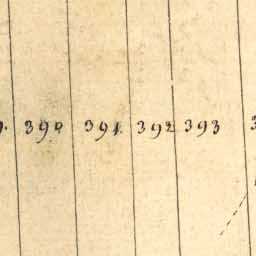 390 391. 392 393